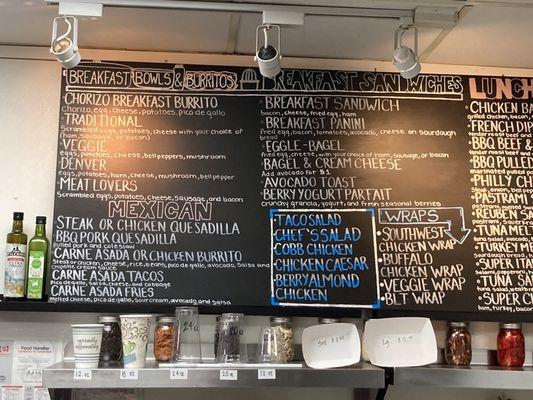 BREAKFAST BOWLS & BURRITOS
CHORIZO BREAKFAST BURRITO
Chorizo, egg, cheese, potatoes, pico de gallo
TRADITIONAL
Scrambled eggs, potatoes, cheese with your choice of
(ham, sausage, or bacon)
VEGGIE
eggs, potatoes, cheese, bell peppers, mushroom
DENVER
eggs, potatoes, ham, cheese, bell peppers, mushroom
MEAT LOVERS
Scrambled eggs, potatoes, cheese, sausage, and bacon
MEXICAN
STEAK OR CHICKEN QUESADILLA
BBQ PORK QUESADILLA
pulled pork and coleslaw
CARNE ASADA OR CHICKEN BURRITO
Steak or chicken, rice, beans, pico de gallo, avocado, salsa and
chipotle cream sauce
CARNE ASADA TACOS
pico de gallo, salsa, cheese, and cabbage
CARNE ASADA FRIES
cheese, pico de gallo, sour cream, avocado, and salsa
BREAKFAST SANDWICHES
BREAKFAST SANDWICH
bacon, cheese, fried egg, ham
BREAKFAST PANINI
fried egg, bacon, tomatoes, avocado, cheese on sourdough
bread
EGGLE-BAGEL
fried egg, cheese, with your choice of ham, sausage, or bacon
BAGEL & CREAM CHEESE
Add avocado for $1
AVOCADO TOAST
BERRY YOGURT PARFAIT
Crunchy granola, yogurt, and fresh seasonal berries
TACO SALAD
CHEF'S SALAD
COBB CHICKEN
CHICKEN CAESAR
BERRY ALMOND
CHICKEN
WRAPS
SOUTHWEST
CHICKEN WRAP
BUFFALO
CHICKEN WRAP
VEGGIE WRAP
BLT WRAP
LUNCH
CHICKEN
FRENCH DIP
BBQ BEEF
BBQ PULLED
PHILLY
PASTRAMI
REUBEN
TUNA MELT
TURKEY M
SUPER
TUNA
SUPER C
ham, turkey, bacon
Food Handler
12 oz
16 oz
24 oz
20 oz
12 oz